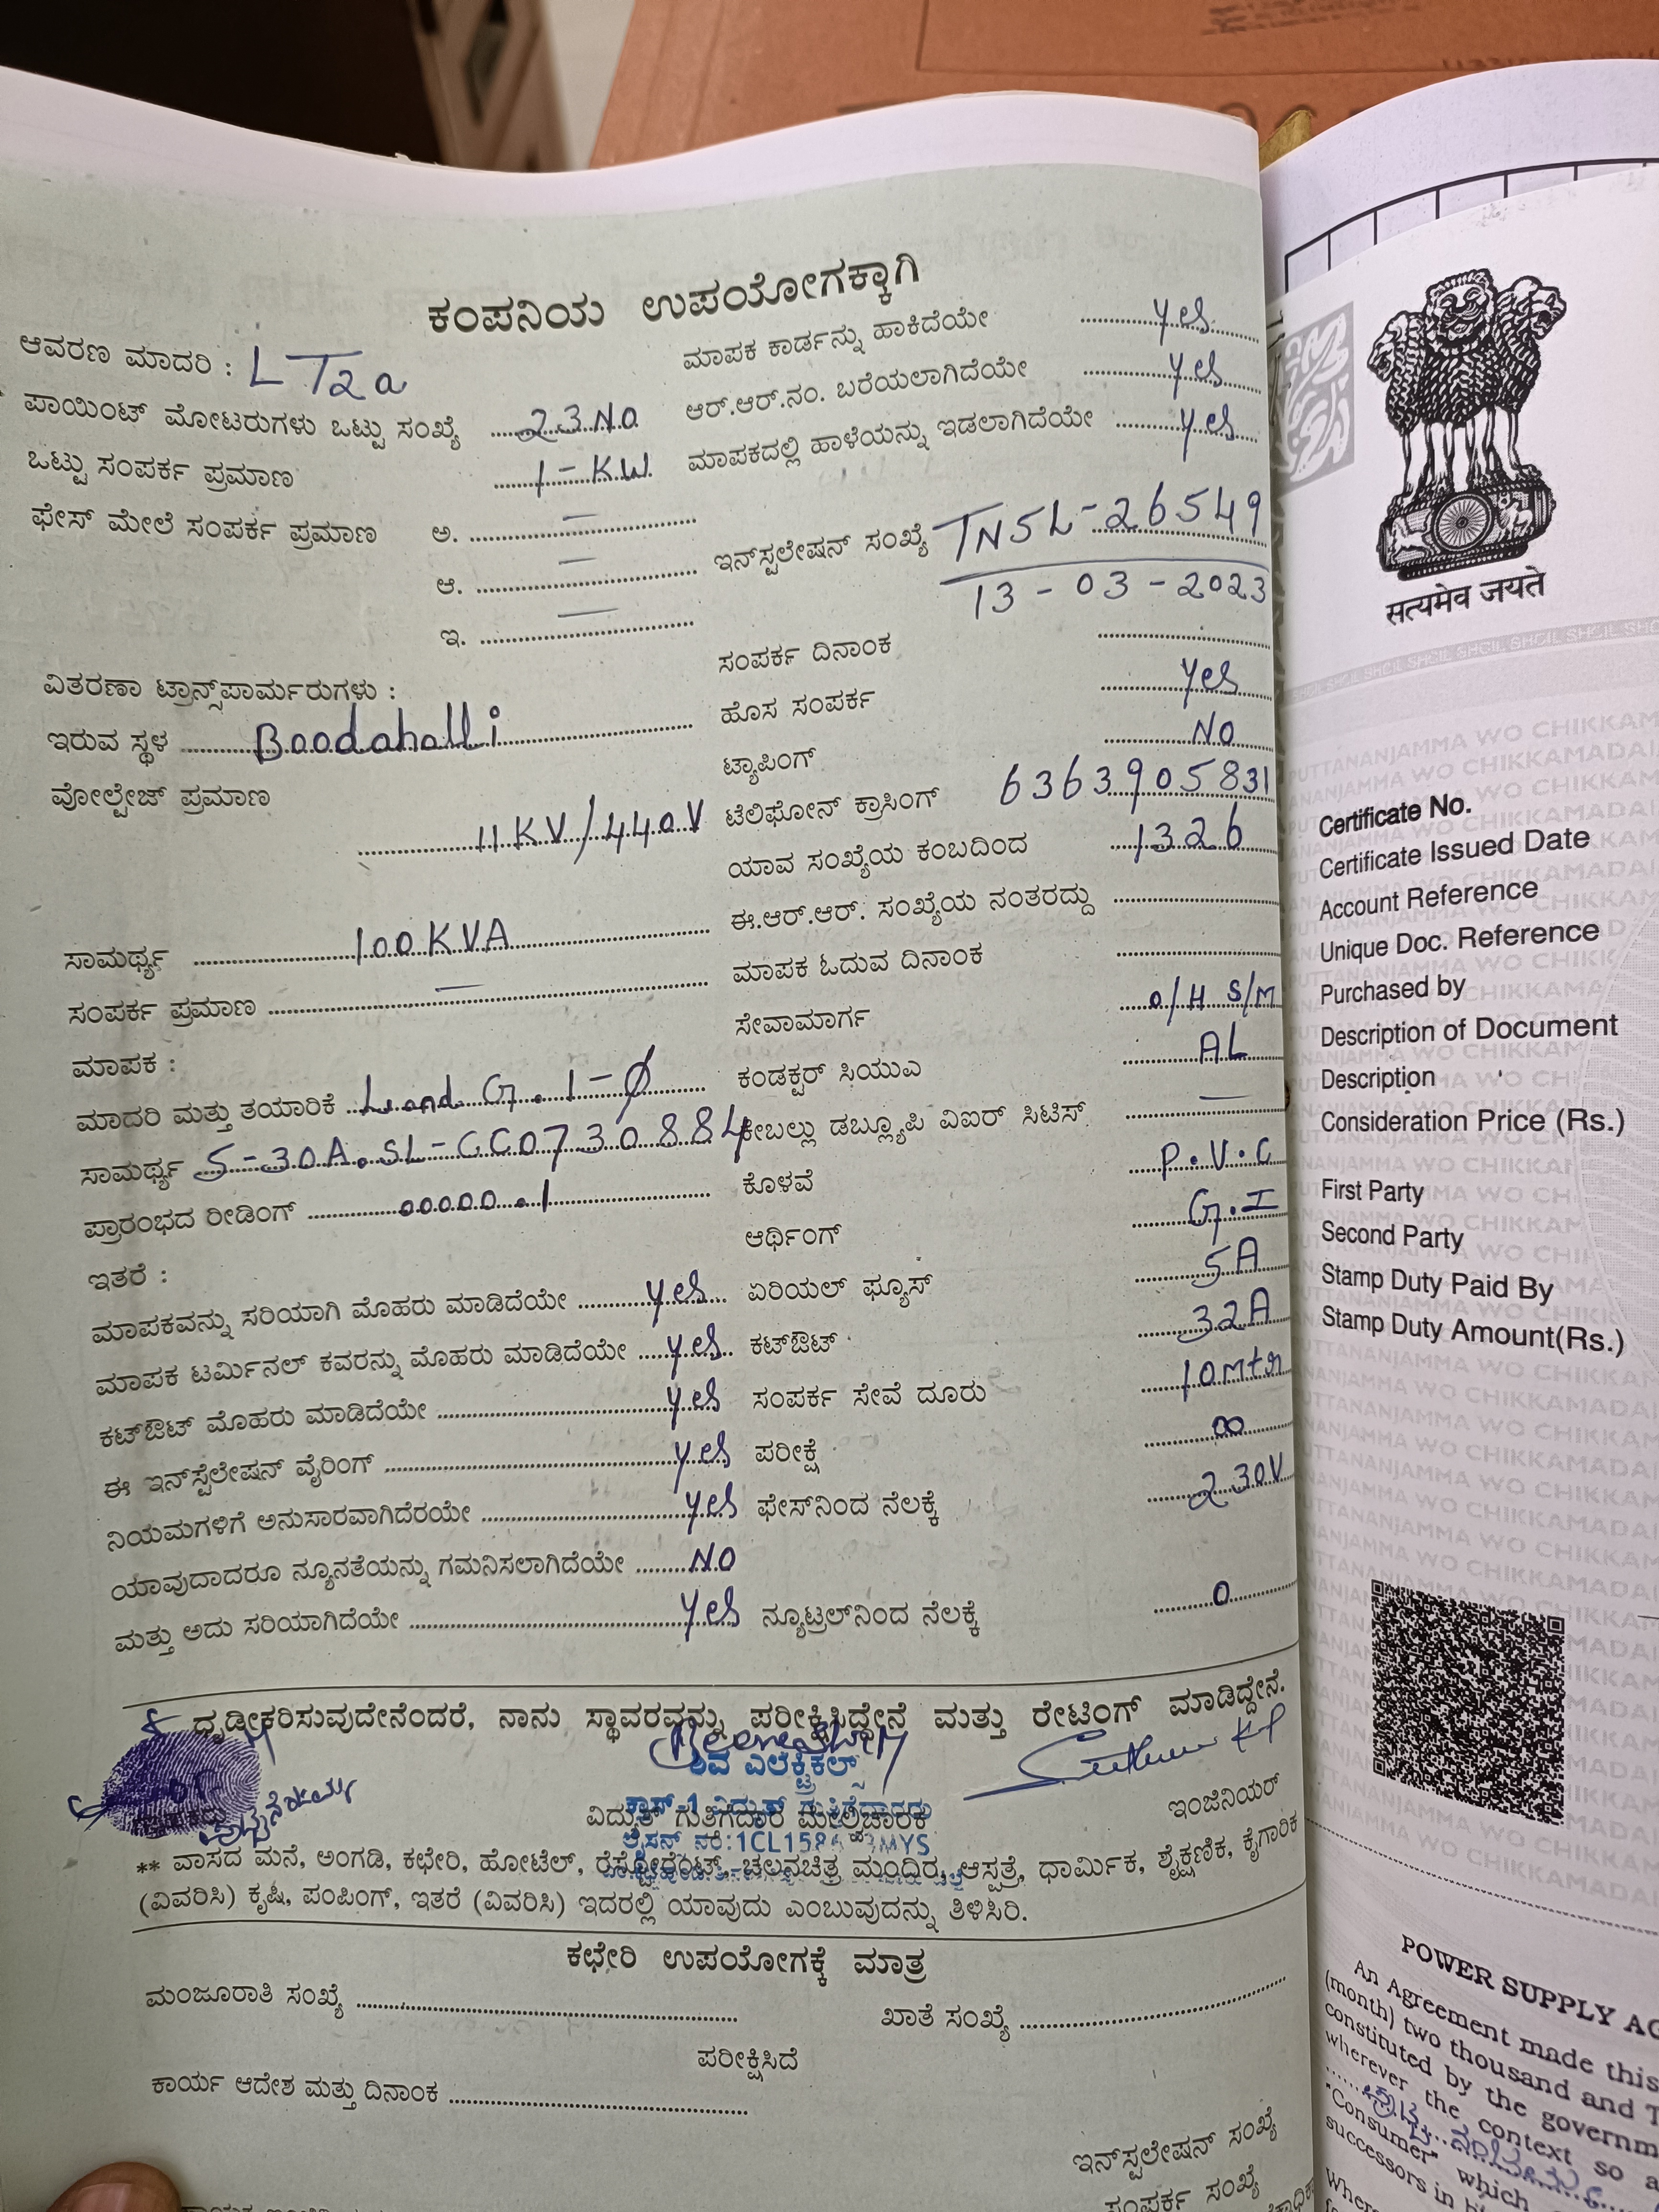 ಕಂಪನಿಯ ಉಪಯೋಗಕ್ಕಾಗಿ
ಆವರಣ ಮಾದರಿ : LT2a
ಪಾಯಿಂಟ್ ಮೋಟರುಗಳು ಒಟ್ಟು ಸಂಖ್ಯೆ 23 No
ಒಟ್ಟು ಸಂಪರ್ಕ ಪ್ರಮಾಣ 1-KW.
ಫೇಸ್ ಮೇಲೆ ಸಂಪರ್ಕ ಪ್ರಮಾಣ ಅ. —
ಆ. —
ಇ. —
ವಿತರಣಾ ಟ್ರಾನ್ಸ್‌ಪಾರ್ಮರುಗಳು :
ಇರುವ ಸ್ಥಳ Boodahalli
ವೋಲ್ಟೇಜ್ ಪ್ರಮಾಣ
11KV/440V
ಸಾಮರ್ಥ್ಯ 100KVA
ಸಂಪರ್ಕ ಪ್ರಮಾಣ —
ಮಾಪಕ :
ಮಾದರಿ ಮತ್ತು ತಯಾರಿಕೆ L and G. 1-Ø
ಸಾಮರ್ಥ್ಯ 5-30A. SL-GC0730884
ಪ್ರಾರಂಭದ ರೀಡಿಂಗ್ 00000.1
ಇತರೆ :
ಮಾಪಕವನ್ನು ಸರಿಯಾಗಿ ಮೊಹರು ಮಾಡಿದೆಯೇ yes
ಮಾಪಕ ಟರ್ಮಿನಲ್ ಕವರನ್ನು ಮೊಹರು ಮಾಡಿದೆಯೇ yes
ಕಟ್‌ಔಟ್ ಮೊಹರು ಮಾಡಿದೆಯೇ yes
ಈ ಇನ್‌ಸ್ಟೆಲೇಷನ್ ವೈರಿಂಗ್ yes
ನಿಯಮಗಳಿಗೆ ಅನುಸಾರವಾಗಿದೆರಯೇ yes
ಯಾವುದಾದರೂ ನ್ಯೂನತೆಯನ್ನು ಗಮನಿಸಲಾಗಿದೆಯೇ NO
ಮತ್ತು ಅದು ಸರಿಯಾಗಿದೆಯೇ yes
ಮಾಪಕ ಕಾರ್ಡನ್ನು ಹಾಕಿದೆಯೇ yes
ಆರ್.ಆರ್.ನಂ. ಬರೆಯಲಾಗಿದೆಯೇ yes
ಮಾಪಕದಲ್ಲಿ ಹಾಳೆಯನ್ನು ಇಡಲಾಗಿದೆಯೇ yes
ಇನ್‌ಸ್ಟಲೇಷನ್ ಸಂಖ್ಯೆ TNSL-26549
13-03-2023
ಸಂಪರ್ಕ ದಿನಾಂಕ
ಹೊಸ ಸಂಪರ್ಕ yes
ಟ್ಯಾಪಿಂಗ್ NO
ಟೆಲಿಫೋನ್ ಕ್ರಾಸಿಂಗ್ 6363905831
ಯಾವ ಸಂಖ್ಯೆಯ ಕಂಬದಿಂದ 1326
ಈ.ಆರ್.ಆರ್. ಸಂಖ್ಯೆಯ ನಂತರದ್ದು
ಮಾಪಕ ಓದುವ ದಿನಾಂಕ
ಸೇವಾಮಾರ್ಗ O/H S/M
ಕಂಡಕ್ಟರ್ ಸಿಯುಎ AL
ಕೇಬಲ್ಲು ಡಬ್ಲ್ಯೂಪಿ ವಿಐರ್ ಸಿಟಿಸ್ —
ಕೊಳವೆ P.V.C
ಆರ್ಥಿಂಗ್ G.I
ಏರಿಯಲ್ ಫ್ಯೂಸ್ 5A
ಕಟ್‌ಔಟ್ 32A
ಸಂಪರ್ಕ ಸೇವೆ ದೂರು 10mtr
ಪರೀಕ್ಷೆ ∞
ಫೇಸ್‌ನಿಂದ ನೆಲಕ್ಕೆ 230V
ನ್ಯೂಟ್ರಲ್‌ನಿಂದ ನೆಲಕ್ಕೆ 0
ಧೃಡೀಕರಿಸುವುದೇನೆಂದರೆ, ನಾನು ಸ್ಥಾವರವನ್ನು ಪರೀಕ್ಷಿಸಿದ್ದೇನೆ ಮತ್ತು ರೇಟಿಂಗ್ ಮಾಡಿದ್ದೇನೆ.
ಶಿವ ಎಲೆಕ್ಟ್ರಿಕಲ್ಸ್
ವಿದ್ಯುತ್ ಗುತ್ತಿಗೆದಾರ ಮೇಲ್ವಿಚಾರಕ
ಇಂಜಿನಿಯರ್
** ವಾಸದ ಮನೆ, ಅಂಗಡಿ, ಕಛೇರಿ, ಹೋಟೆಲ್, ರೆಸ್ಟೋರೆಂಟ್, ಚಲನಚಿತ್ರ ಮಂದಿರ, ಆಸ್ಪತ್ರೆ, ಧಾರ್ಮಿಕ, ಶೈಕ್ಷಣಿಕ, ಕೈಗಾರಿಕ
(ವಿವರಿಸಿ) ಕೃಷಿ, ಪಂಪಿಂಗ್, ಇತರೆ (ವಿವರಿಸಿ) ಇದರಲ್ಲಿ ಯಾವುದು ಎಂಬುವುದನ್ನು ತಿಳಿಸಿರಿ.
ಕಛೇರಿ ಉಪಯೋಗಕ್ಕೆ ಮಾತ್ರ
ಮಂಜೂರಾತಿ ಸಂಖ್ಯೆ
ಖಾತೆ ಸಂಖ್ಯೆ
ಪರೀಕ್ಷಿಸಿದೆ
ಕಾರ್ಯ ಆದೇಶ ಮತ್ತು ದಿನಾಂಕ
ಇನ್‌ಸ್ಟಲೇಷನ್ ಸಂಖ್ಯೆ
ಸಂಪರ್ಕ ಸಂಖ್ಯೆ
सत्यमेव जयते
Certificate No.
Certificate Issued Date
Account Reference
Unique Doc. Reference
Purchased by
Description of Document
Description
Consideration Price (Rs.)
First Party
Second Party
Stamp Duty Paid By
Stamp Duty Amount(Rs.)
POWER SUPPLY
An Agreement made this
(month) two thousand and
constituted by the
wherever the context so
"Consumer" which
successors in